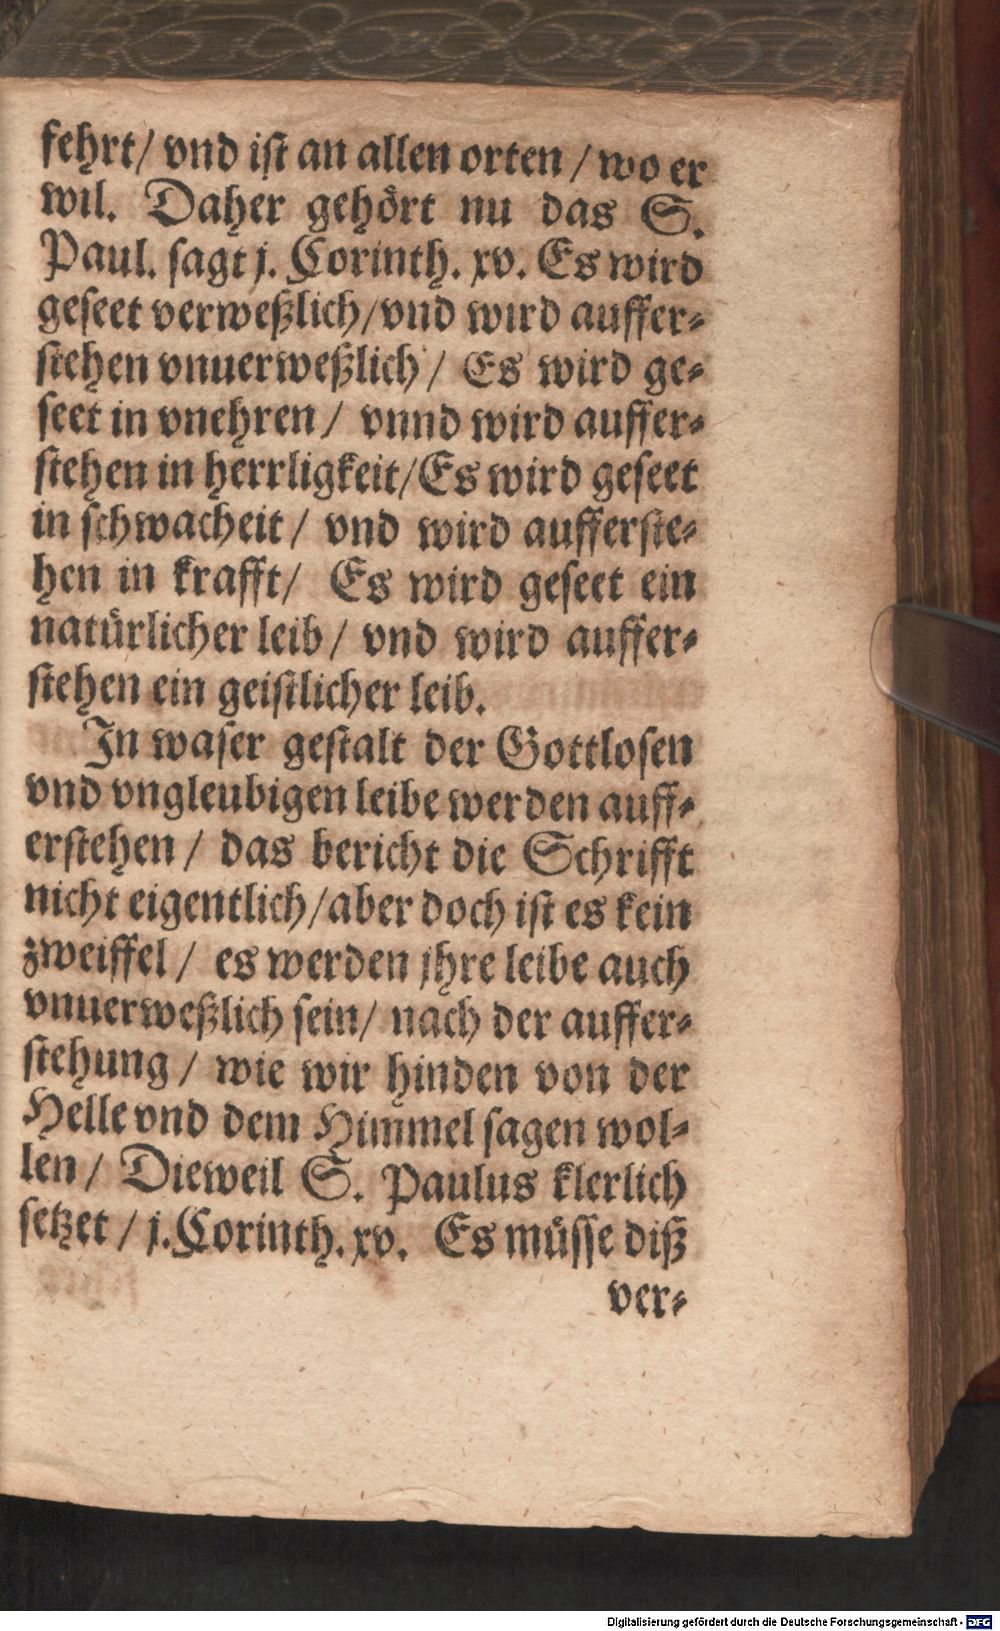 fehrt/ vnd ist an allen orten / wo er
wil. Daher gehört nu das S.
Paul. sagt j. Corinth. xv. Es wird
geseet verweßlich/vnd wird auffer-
stehen vnuerweßlich / Es wird ge-
seet in vnehren / vnnd wird auffer-
stehen in herrligkeit/Es wird geseet
in schwacheit / vnd wird aufferste-
hen in krafft/ Es wird geseet ein
natürlicher leib / vnd wird auffer-
stehen ein geistlicher leib.
In waser gestalt der Gottlosen
vnd vngleubigen leibe werden auff-
erstehen / das bericht die Schrifft
nicht eigentlich/aber doch ist es kein
zweiffel / es werden jhre leibe auch
vnuerweßlich sein/ nach der auffer-
stehung / wie wir hinden von der
Helle vnd dem Himmel sagen wol-
len / Dieweil S. Paulus klerlich
setzet / j. Corinth. xv. Es müsse diß
ver-
Digitalisierung gefördert durch die Deutsche Forschungsgemeinschaft - DFG